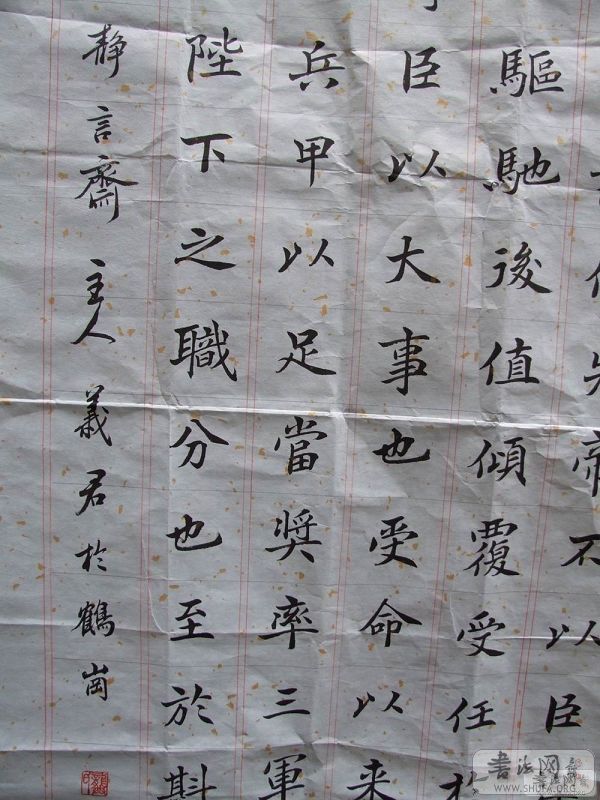 先帝不以臣
驅馳後值傾覆受任於
臣以大事也受命以来
兵甲以足當奬率三軍
陛下之職分也至於斟
靜言齋主人義君於鶴崗
書法网
WWW.SHUFA.ORG